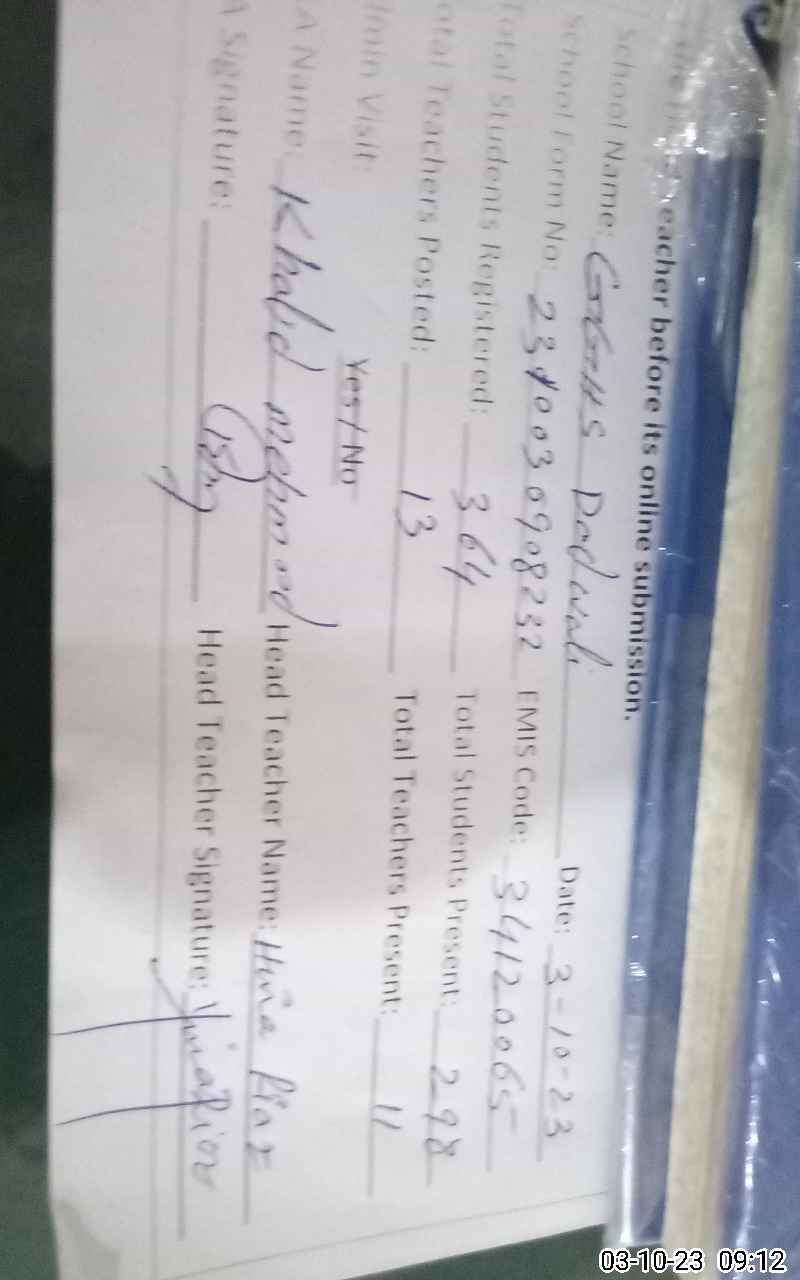 eacher before its online submission.
School Name: GGHS Dadwali Date: 3-10-23
School Form No: 2310030908232 EMIS Code: 34120065
Total Students Registered: 364 Total Students Present: 298
otal Teachers Posted: 13 Total Teachers Present: 11
dmin Visit: Yes / No
A Name: Khalid mehmood Head Teacher Name: Hina Riaz
A Signature: Head Teacher Signature:
03-10-23 09:12